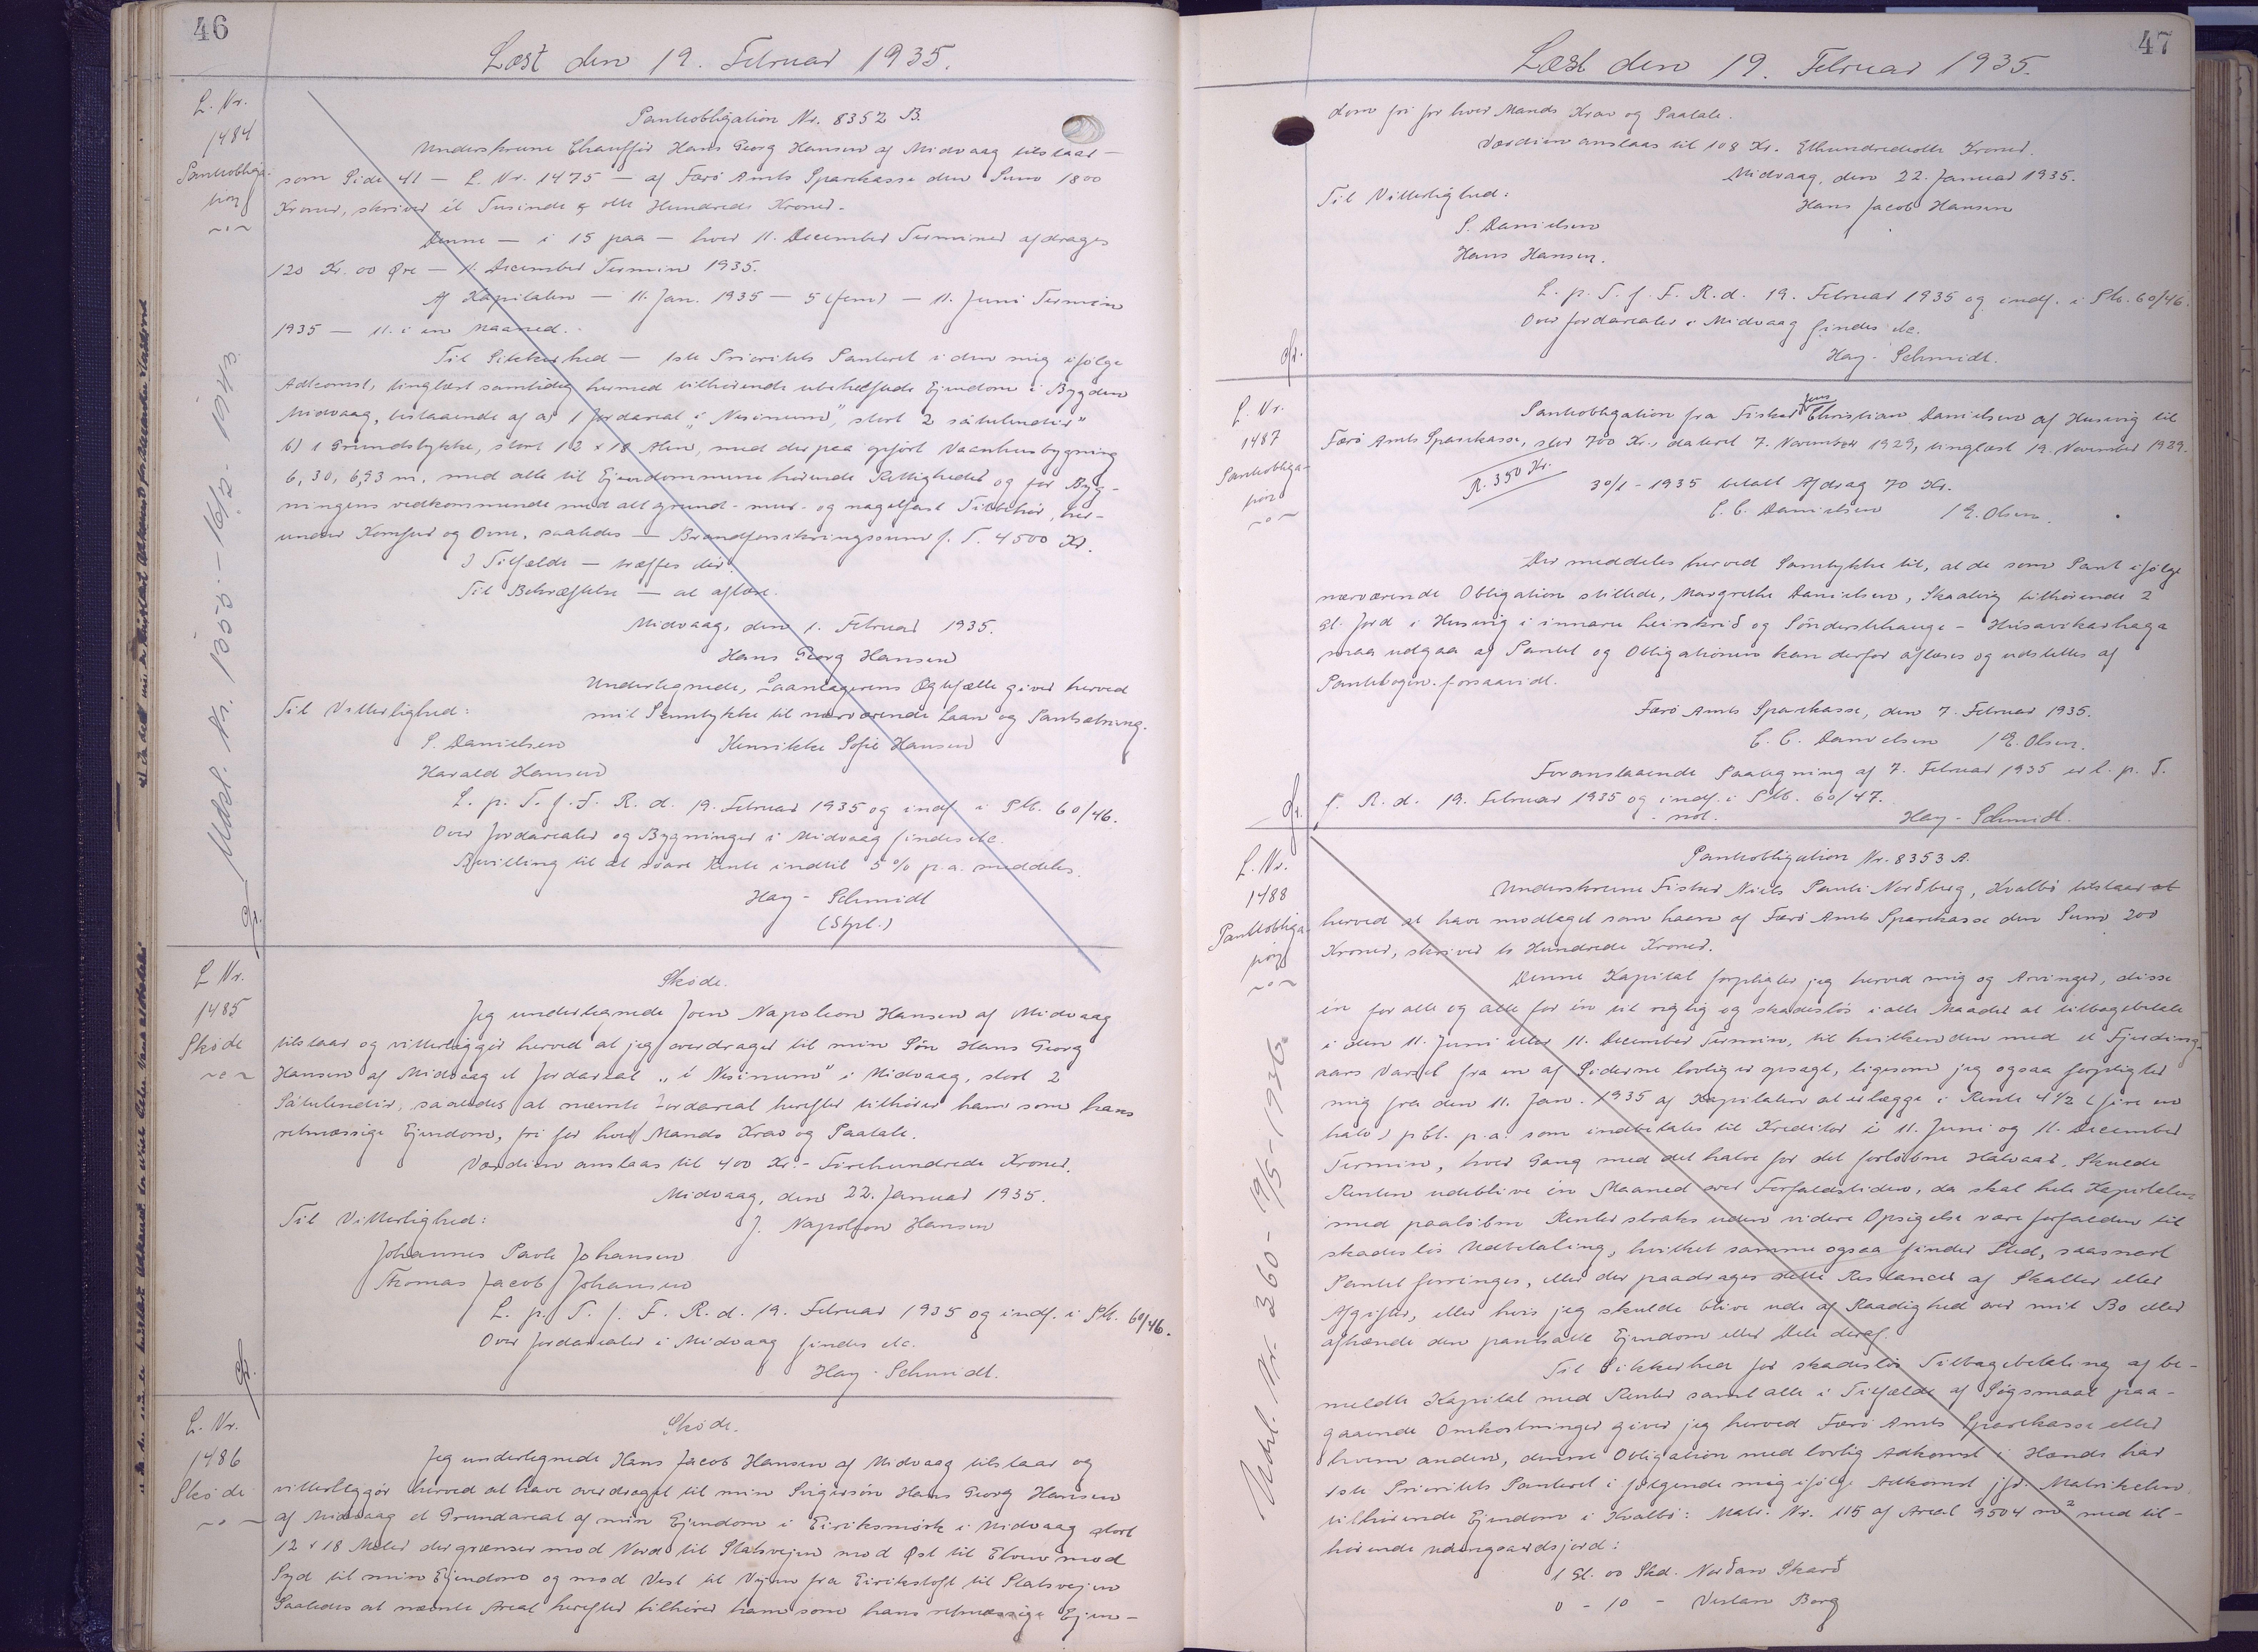 46
Læst den 19. Februar 1935.
L. Nr.
1484
Pantobliga-
tion
Pantobligation Nr. 8352 B.
Underskrevne Chauffør Hans Georg Hansen af Midvaag tilstaar —
som Side 41 — L. Nr. 1475 — af Færø Amts Sparekasse den Sum 1800
Kroner, skriver ét Tusinde & otte Hundrede Kroner.
Denne — i 15 paa — hver 11. December Terminer afdrages
120 Kr. 00 Øre — 11. December Termin 1935.
Af Kapitalen — 11. Jan. 1935 — 5 (fem) — 11. Juni Termin
1935 — 11. i en Maaned.
Til Sikkerhed — 1ste Prioritets Panteret i den mig ifølge
Adkomst, tinglæst samtidig hermed tilhørende ubehæftede Ejendom i Bygden
Midvaag, bestaaende af a) 1 Jordareal "í Nesinum", stort 2 sátulendir"
b) 1 Grundstykke, stort 12 x 18 Alen, med derpaa opført Vaanhusbygning
6,30, 6,93 m, med alle til Ejendommene hørende Rettigheder og for Byg-
ningens vedkommende med alt grund- mur- og nagelfast Tilbehør, her-
under Komfur og Ovne, saaledes — Brandforsikringssum f. T. 4500 Kr.
I Tilfælde — træffes der.
Til Bekræftelse — at aflæse.
Midvaag, den 1. Februar 1935.
Hans Georg Hansen
Undertegnede, Laantagerens Ægtefælle giver herved
Til Vitterlighed: mit Samtykke til nærværende Laan og Pantsætning.
P. Danielsen Henrikke Sofie Hansen
Harald Hansen
L. p. T. f. F. R. d. 19. Februar 1935 og indf. i Pb. 60/46.
Over Jordarealer og Bygninger i Midvaag findes etc.
Bevilling til at svare Rente indtil 5 % p.a. meddeles.
Hay-Schmidt
(Stpl.)
L. Nr.
1485
Skøde
Skøde.
Jeg undertegnede Joen Napoleon Hansen af Midvaag
tilstaar og vitterliggør herved at jeg overdrager til min Søn Hans Georg
Hansen af Midvaag et Jordareal "í Nesinum" i Midvaag, stort 2
Sátulendir, saaledes at nævnte Jordareal herefter tilhører ham som hans
retmæssige Ejendom, fri for hver Mands Krav og Paatale.
Værdien anslaas til 400 Kr. - Firehundrede Kroner.
Midvaag, den 22. Januar 1935.
Til Vitterlighed: J. Napoleon Hansen
Johannes Pavle Johansen
Thomas Jacob Johansen
L. p. T. f. F. R. d. 19. Februar 1935 og indf. i Pb. 60/46.
Over Jordarealer i Midvaag findes etc.
Hay-Schmidt.
L. Nr.
1486
Skøde
Skøde.
Jeg undertegnede Hans Jacob Hansen af Midvaag tilstaar og
vitterliggør herved at have overdraget til min Svigersøn Hans Georg Hansen
af Midvaag et Grundareal af min Ejendom i Eiriksmørk i Midvaag stort
12 x 18 Meter der grænser mod Nord til Statsvejen mod Øst til Elven mod
Syd til min Ejendom og mod Vest til Vejen fra Eirikstoft til Statsvejen
Saaledes at nævnte Areal herefter tilhører ham som hans retmæssige Ejen-
47
Læst den 19. Februar 1935.
dom fri for hver Mands Krav og Paatale.
Værdien anslaas til 108 Kr. Ethundredeotte Kroner.
Midvaag, den 22. Januar 1935.
Til Vitterlighed: Hans Jacob Hansen
P. Danielsen
Hans Hansen.
L. p. T. f. F. R. d. 19. Februar 1935 og indf. i Pb. 60/46.
Over Jordarealer i Midvaag findes etc.
Hay-Schmidt.
L. Nr.
1487
Pantobliga-
tion
Pantobligation fra Fisker Jens Christian Danielsen af Husevig til
Færø Amts Sparekasse, stor 700 Kr., dateret 7. November 1929, tinglæst 19. November 1929.
R. 350 Kr.
30/1 - 1935 betalt Afdrag 70 Kr.
C. C. Danielsen / E. Olsen.
Der meddeles herved Samtykke til, at de som Pant ifølge
nærværende Obligation stillede, Margrethe Danielsen, Skaalvig tilhørende 2
Gl. Jord i Husevig i innara Leirskrið og Sønderstehauge - Húsavikarhaga
maa udgaa af Pantet og Obligationen kan derfor aflæses og udslettes af
Pantebogen forsaavidt.
Færø Amts Sparekasse, den 7. Februar 1935.
C. C. Danielsen / E. Olsen.
Foranstaaende Paategning af 7. Februar 1935 er l. p. T.
f. R. d. 19. Februar 1935 og indf. i Pb. 60/47.
not. Hay-Schmidt.
L. Nr.
1488
Pantobliga-
tion
Udsl. Nr. 360 - 19/5 - 1936
Pantobligation Nr. 8353 A.
Underskrevne Fisker Niels Pauli Norðberg, Kvalbø tilstaar at
herved at have modtaget som Laan af Færø Amts Sparekasse den Sum 200
Kroner, skriver to Hundrede Kroner.
Denne Kapital forpligter jeg herved mig og Arvinger, disse
én for alle og alle for én til rigtig og skadesløs i alle Maader at tilbagebetale
i den 11. Juni eller 11. December Termin, til hvilken den med et Fjerding-
aars Varsel fra en af Siderne lovlig er opsagt, ligesom jeg ogsaa forpligter
mig fra den 11. Jan. 1935 af Kapitalen at erlægge i Rente 4 1/2 (fire en
halv) pCt. p.a. som indbetales til Kreditor i 11. Juni og 11. December
Termin, hver Gang med det halve for det forløbne Halvaar. Skulde
Renten udeblive én Maaned over Forfaldstiden, da skal hele Kapitalen
med paaløbne Renter straks uden videre Opsigelse være forfalden til
skadesløs Udbetaling, hvilket samme ogsaa finder Sted, saasnart
Pantet forringes, eller der paadrages dette Restancer af Skatter eller
Afgifter, eller hvis jeg skulde blive ude af Raadighed over mit Bo eller
afhænde den pantsatte Ejendom eller Dele deraf.
Til Sikkerhed for skadesløs Tilbagebetaling af be-
meldte Kapital med Renter samt alle i Tilfælde af Søgsmaal paa-
gaaende Omkostninger giver jeg herved Færø Amts Sparekasse eller
hvem anden, denne Obligation med lovlig Adkomst i Hænde har
1ste Prioritets Panteret i følgende mig ifølge Adkomst jfr. Matrikelen
tilhørende Ejendom i Kvalbø: Matr. Nr. 115 af Areal 9504 m² med til-
hørende udengaardsjord:
1 Gl. 00 Skd. Norðan Skarð
0 - 10 - Vestan Borg